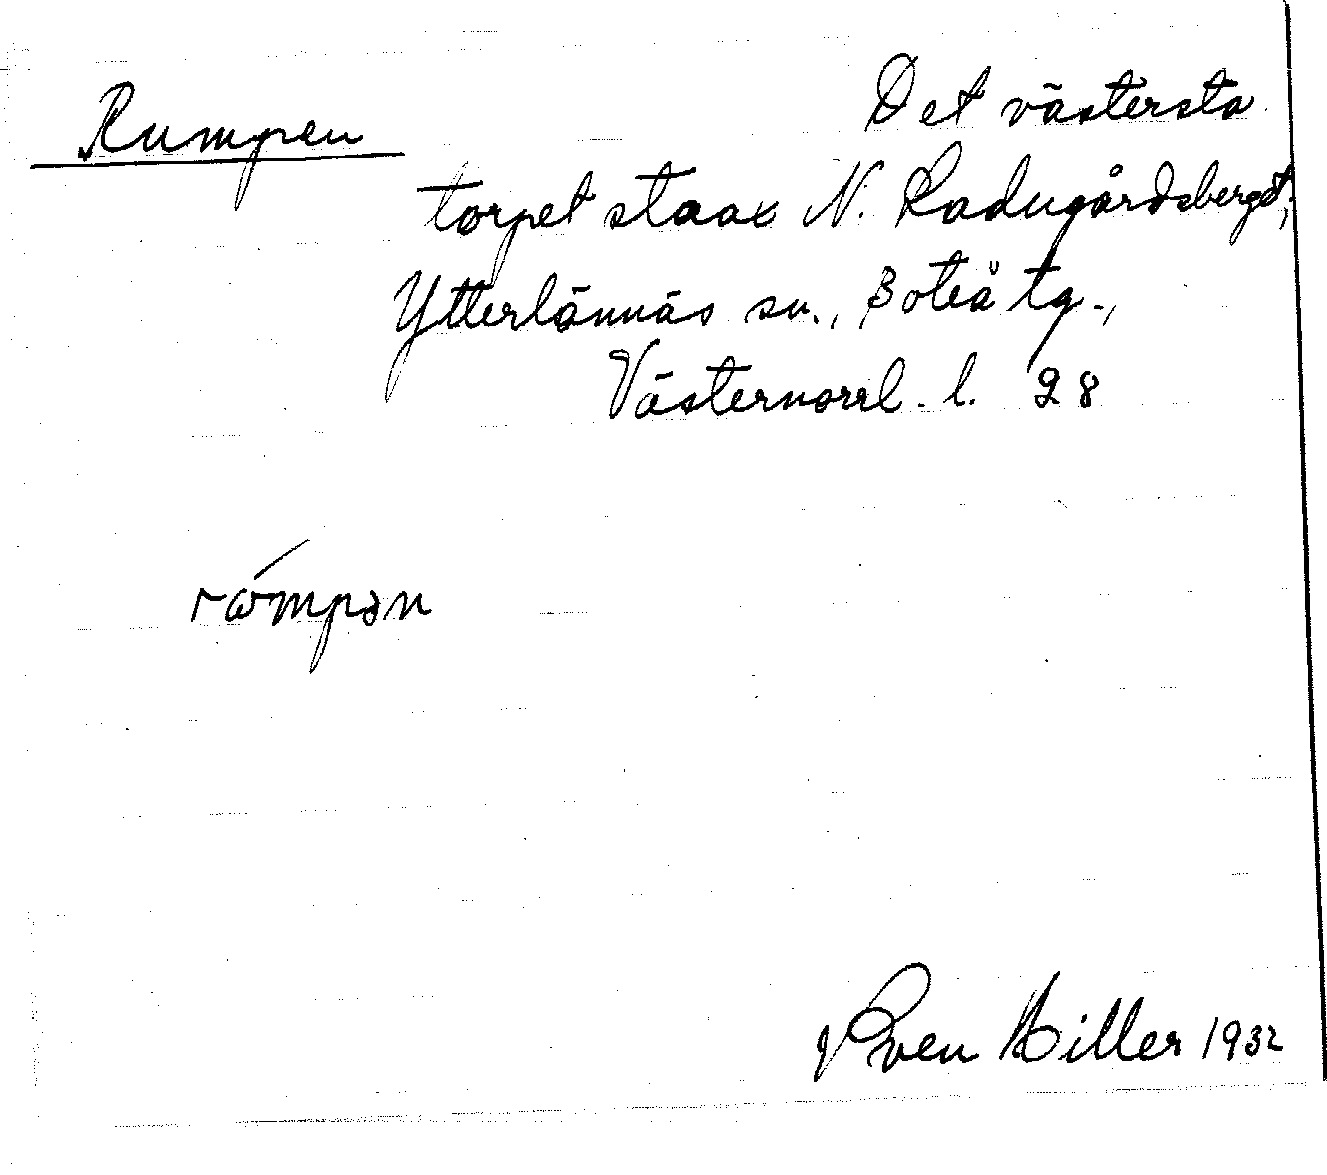 Rumpen
Det västersta
torpet staax N. Ladugårdsberget,
Ytterlännäs sn., Boteå tg.,
Västernorrl. l. 28
rωmpən
Sven Hiller 1932